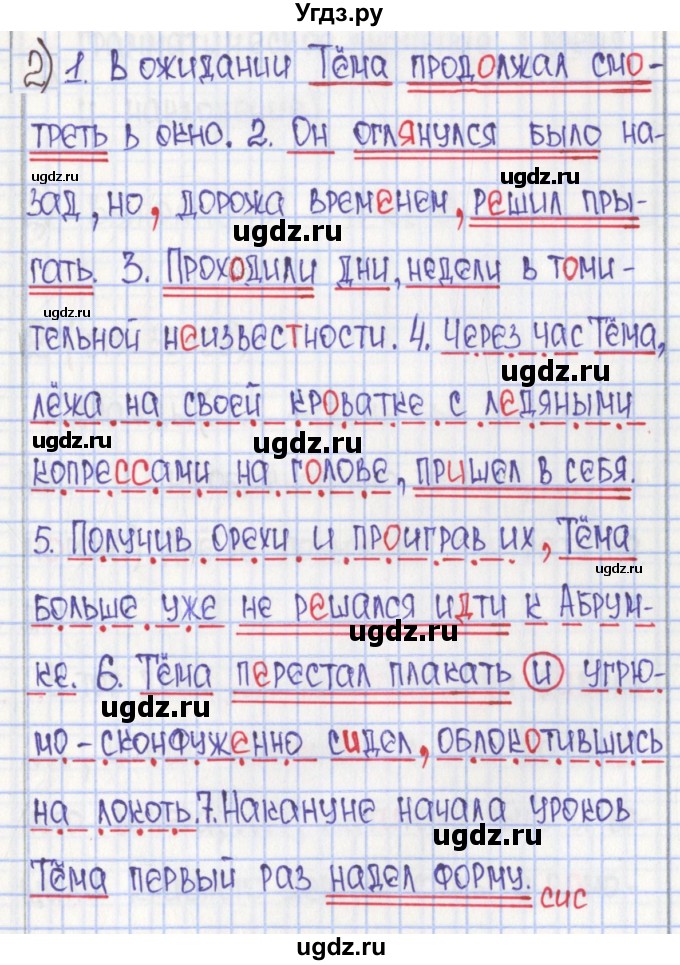 Угдз.ру
2) 1. В ожидании Тёма продолжал смо-
треть в окно. 2. Он оглянулся было на-
ugdz.ru ugdz.ru
зад, но, дорожа временем, решил пры-
ugdz.ru
гать. 3. Проходили дни, недели в томи-
ugdz.ru
тельной неизвестности. 4. Через час Тёма,
ugdz.ru
лёжа на своей кроватке с ледяными
ugdz.ru ugdz.ru
копрессами на голове, пришел в себя.
5. Получив орехи и проиграв их, Тёма
ugdz.ru
больше уже не решался идти к Абрум-
ugdz.ru
ке. 6. Тёма перестал плакать и угрю-
ugdz.ru
мо-сконфуженно сидел, облокотившись
на локоть. 7. Накануне начала уроков
ugdz.ru
Тёма первый раз надел форму. сис
ugdz.ru